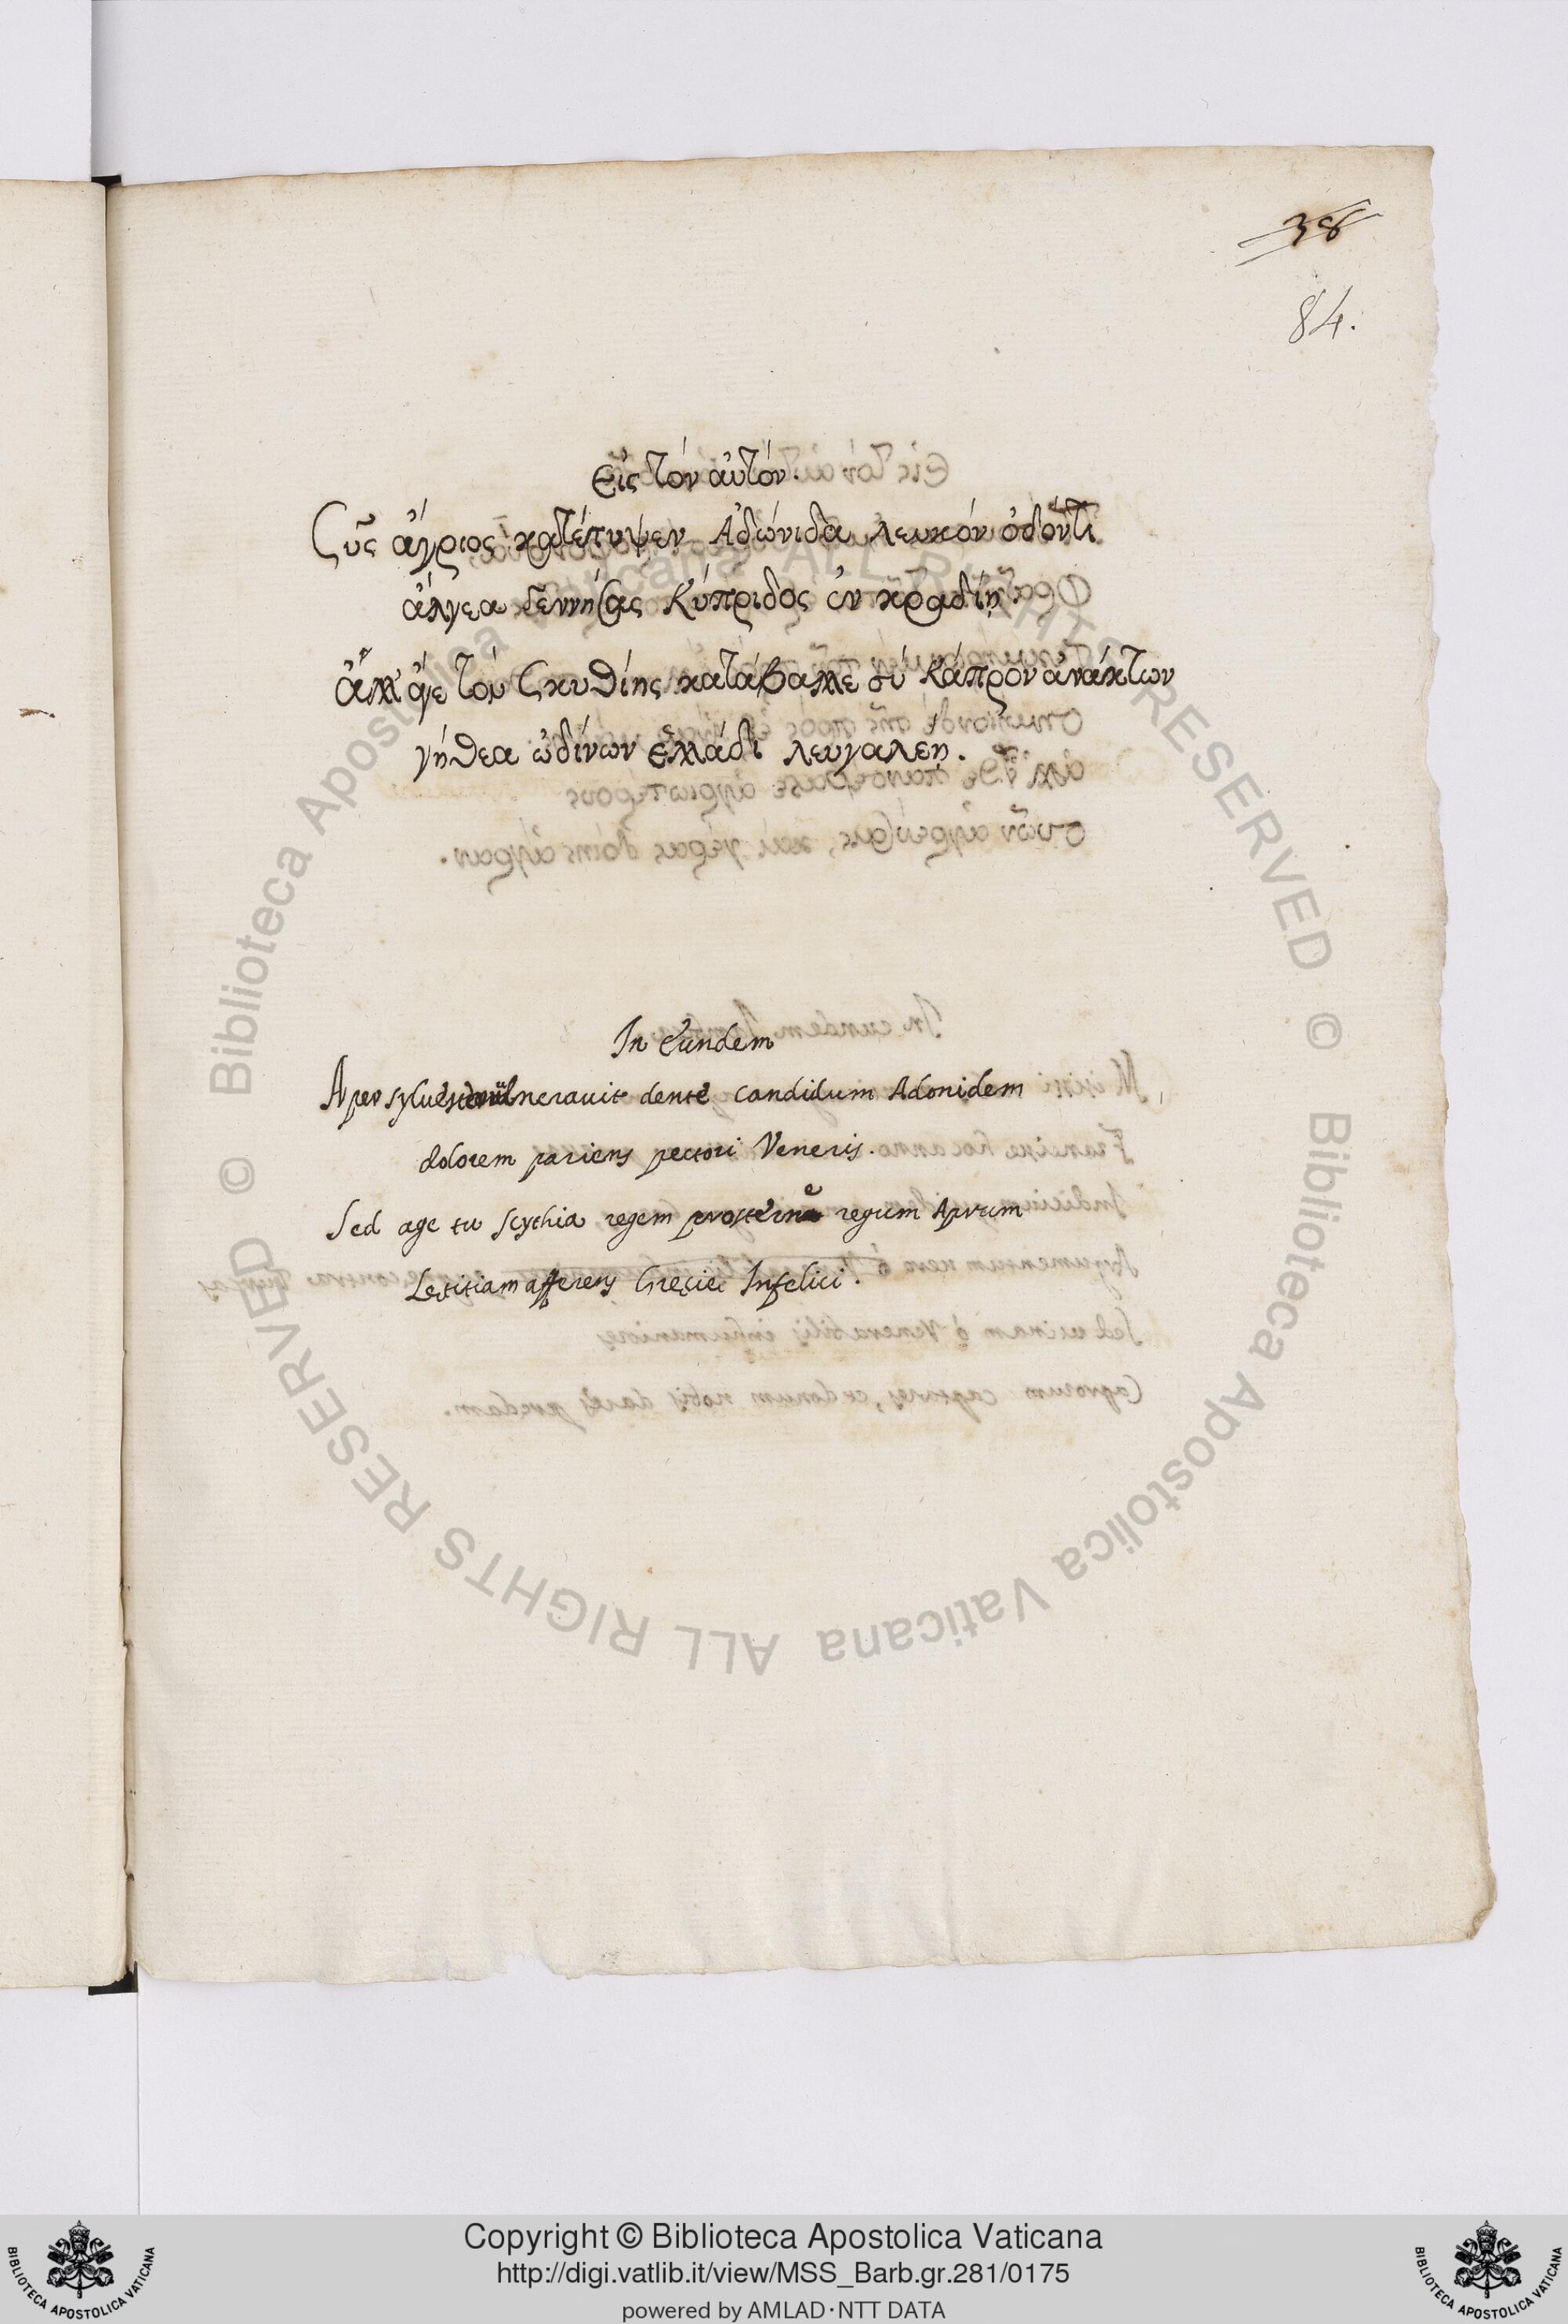 38
84.
Εἰς τόν αὐτόν.
Σῦς ἄγριος κατέτυψεν Ἀδώνιδα λευκόν ὀδόντι
ἄλγεα γεννήσας Κύπριδος ἐν κραδίῃ
ἀλλ' ἄγε τόν Σκυθίης κατάβαλλε σύ Κάπρον ἀνάκτων
γήθεα ὠδίνων ἑλλάδι λευγαλέῃ.
In Eundem
Aper sylvester vulneravit dente candidum Adonidem
dolorem pariens pectori Veneris.
Sed age tu Scythia regem prosterne regum Aprum
Lętitiam afferens Gręcię Infelici.
© Biblioteca Apostolica Vaticana ALL RIGHTS RESERVED © Biblioteca Apostolica Vaticana ALL RIGHTS RESERVED
Copyright © Biblioteca Apostolica Vaticana
http://digi.vatlib.it/view/MSS_Barb.gr.281/0175
powered by AMLAD·NTT DATA
BIBLIOTECA APOSTOLICA VATICANA
BIBLIOTECA APOSTOLICA VATICANA